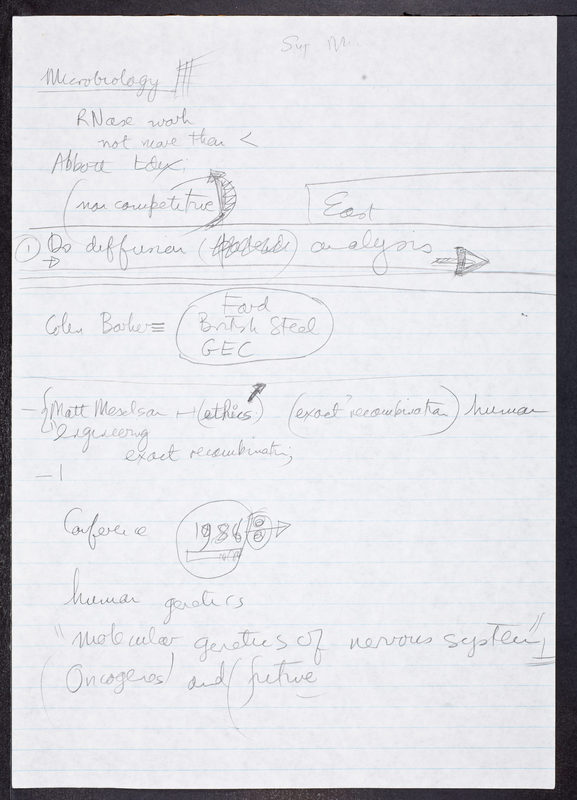 Microbiology
RNase work
not more than <
Abbott
(non competitive)
East
① Do diffusion ( ) analysis
Colin Barker ≡
Ford
British Steel
GEC
- Matt Meselson (ethics) (exact recombination) human
engineering
exact recombination
Conference 1986
human genetics
"molecular genetics of nervous system"
(Oncogenes) and (future